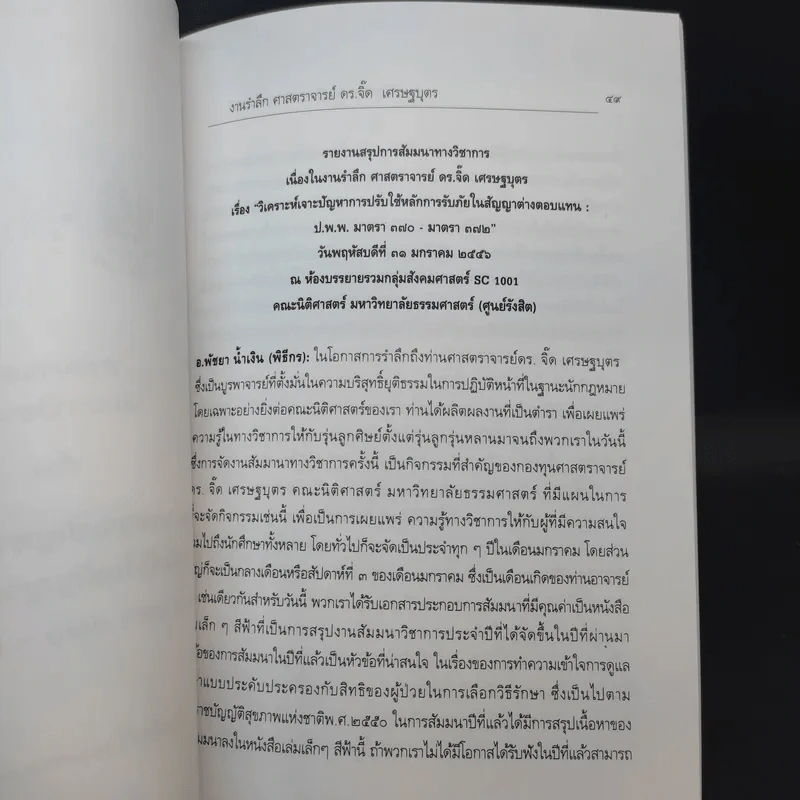 งานรำลึก ศาสตราจารย์ ดร.จี๊ด เศรษฐบุตร ๔๙
รายงานสรุปการสัมมนาทางวิชาการ
เนื่องในงานรำลึก ศาสตราจารย์ ดร.จี๊ด เศรษฐบุตร
เรื่อง "วิเคราะห์เจาะปัญหาการปรับใช้หลักการรับภัยในสัญญาต่างตอบแทน :
ป.พ.พ. มาตรา ๓๗๐ - มาตรา ๓๗๒"
วันพฤหัสบดีที่ ๓๑ มกราคม ๒๕๕๖
ณ ห้องบรรยายรวมกลุ่มสังคมศาสตร์ SC 1001
คณะนิติศาสตร์ มหาวิทยาลัยธรรมศาสตร์ (ศูนย์รังสิต)
อ.พัชยา น้ำเงิน (พิธีกร): ในโอกาสการรำลึกถึงท่านศาสตราจารย์ดร. จี๊ด เศรษฐบุตร
ซึ่งเป็นบูรพาจารย์ที่ตั้งมั่นในความบริสุทธิ์ยุติธรรมในการปฏิบัติหน้าที่ในฐานะนักกฎหมาย
โดยเฉพาะอย่างยิ่งต่อคณะนิติศาสตร์ของเรา ท่านได้ผลิตผลงานที่เป็นตำรา เพื่อเผยแพร่
ความรู้ในทางวิชาการให้กับรุ่นลูกศิษย์ตั้งแต่รุ่นลูกรุ่นหลานมาจนถึงพวกเราในวันนี้
ซึ่งการจัดงานสัมมนาทางวิชาการครั้งนี้ เป็นกิจกรรมที่สำคัญของกองทุนศาสตราจารย์
ดร. จี๊ด เศรษฐบุตร คณะนิติศาสตร์ มหาวิทยาลัยธรรมศาสตร์ ที่มีแผนในการ
ที่จะจัดกิจกรรมเช่นนี้ เพื่อเป็นการเผยแพร่ ความรู้ทางวิชาการให้กับผู้ที่มีความสนใจ
มไปถึงนักศึกษาทั้งหลาย โดยทั่วไปก็จะจัดเป็นประจำทุก ๆ ปีในเดือนมกราคม โดยส่วน
ญ่ก็จะเป็นกลางเดือนหรือสัปดาห์ที่ ๓ ของเดือนมกราคม ซึ่งเป็นเดือนเกิดของท่านอาจารย์
เช่นเดียวกันสำหรับวันนี้ พวกเราได้รับเอกสารประกอบการสัมมนาที่มีคุณค่าเป็นหนังสือ
มเล็ก ๆ สีฟ้าที่เป็นการสรุปงานสัมมนาวิชาการประจำปีที่ได้จัดขึ้นในปีที่ผ่านมา
ข้อของการสัมมนาในปีที่แล้วเป็นหัวข้อที่น่าสนใจ ในเรื่องของการทำความเข้าใจการดูแล
าแบบประคับประครองกับสิทธิของผู้ป่วยในการเลือกวิธีรักษา ซึ่งเป็นไปตาม
ราชบัญญัติสุขภาพแห่งชาติพ.ศ.๒๕๕๐ ในการสัมมนาปีที่แล้วได้มีการสรุปเนื้อหาของ
มมนาลงในหนังสือเล่มเล็กๆ สีฟ้านี้ ถ้าพวกเราไม่ได้มีโอกาสได้รับฟังในปีที่แล้วสามารถ